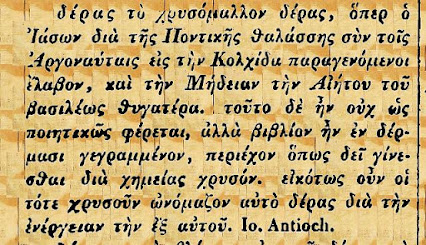 δέρας τὸ χρυσόμαλλον δέρας, ὅπερ ὁ
Ἰάσων διὰ τῆς Ποντικῆς θαλάσσης σὺν τοῖς
Ἀργοναύταις εἰς τὴν Κολχίδα παραγενόμενοι
ἔλαβον, καὶ τὴν Μήδειαν τὴν Αἰήτου τοῦ
βασιλέως θυγατέρα. τοῦτο δὲ ἦν οὐχ ὡς
ποιητικῶς φέρεται, ἀλλὰ βιβλίον ἦν ἐν δέρ-
μασι γεγραμμένον, περιέχον ὅπως δεῖ γίνε-
σθαι διὰ χημείας χρυσόν. εἰκότως οὖν οἱ
τότε χρυσοῦν ὠνόμαζον αὐτὸ δέρας διὰ τὴν
ἐνέργειαν τὴν ἐξ αὐτοῦ. Io. Antioch.